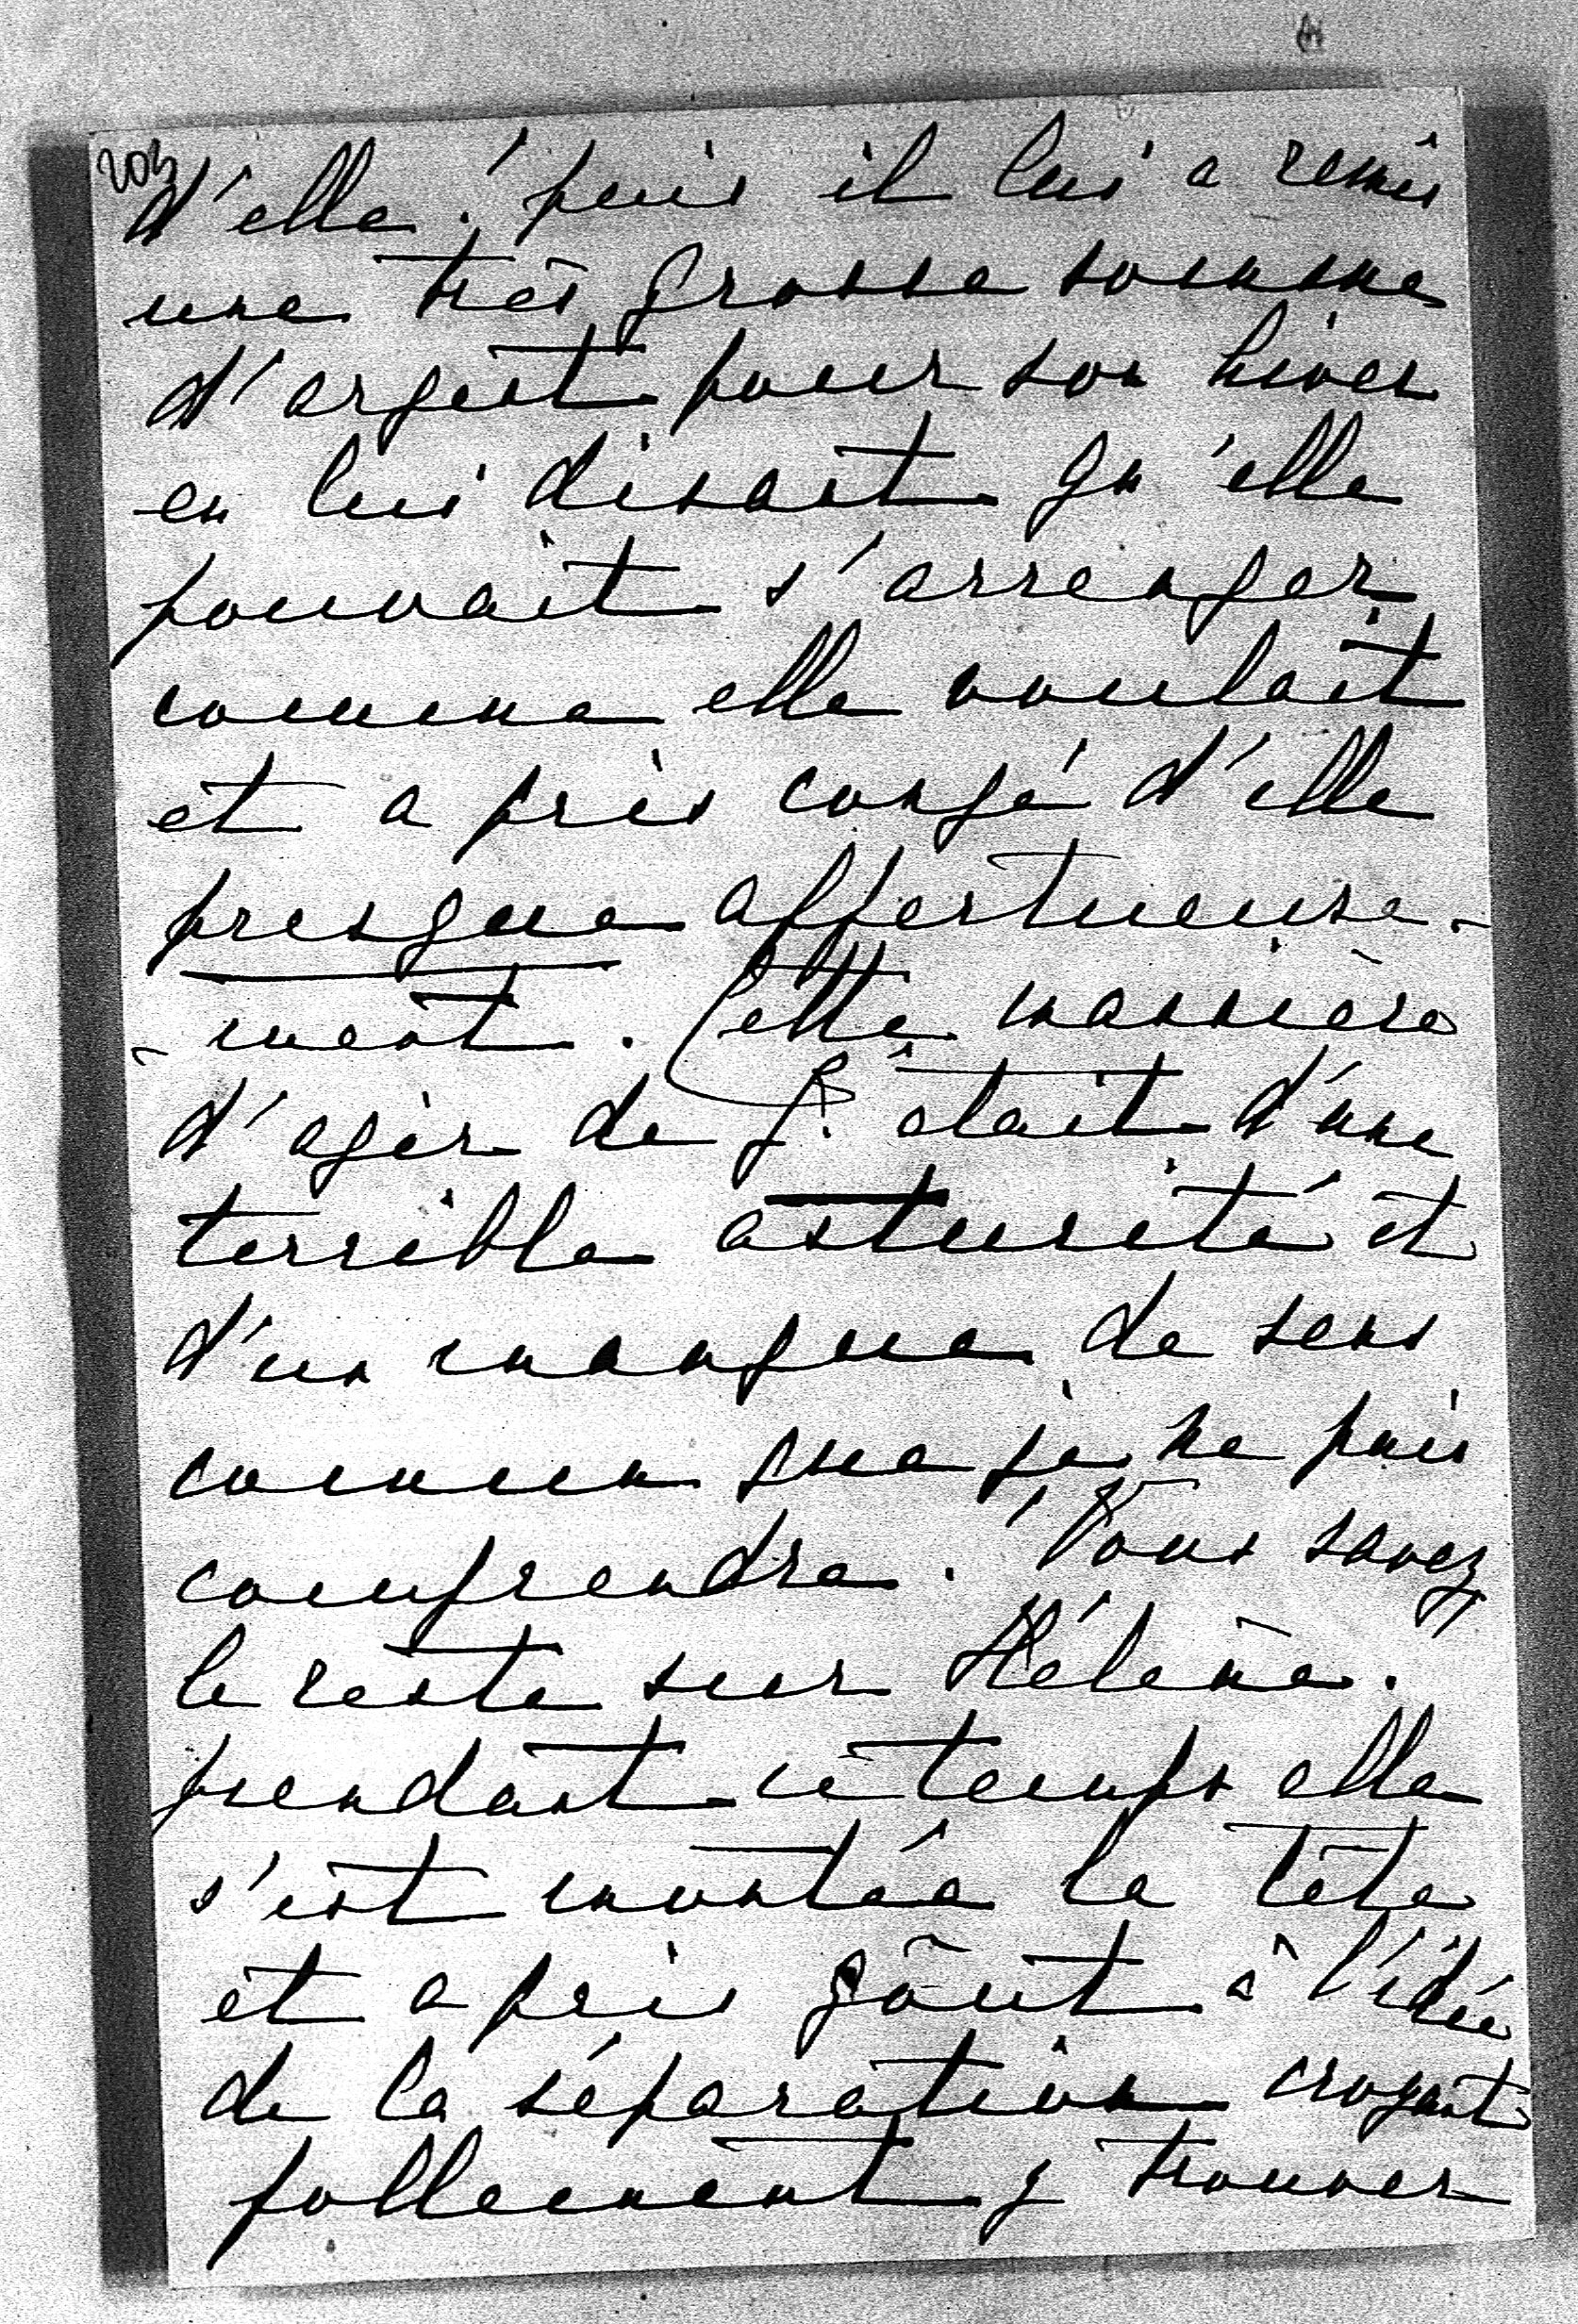 203
d'elle. puis il lui a remis
une très grosse somme
d'argent pour son hiver
en lui disant qu'elle
pouvait s'arranger
comme elle voulait
et a pris congé d'elle
presque affectueuse-
-ment. Cette manière
d'agir de G. était d'une
terrible astucité et
d'un manque de sens
commun que je ne puis
comprendre. Vous savez
le reste sur Hélène.
pendant ce temps elle
s'est montée la tête
et a pris goût à l'idée
de la séparation croyant
follement y trouver